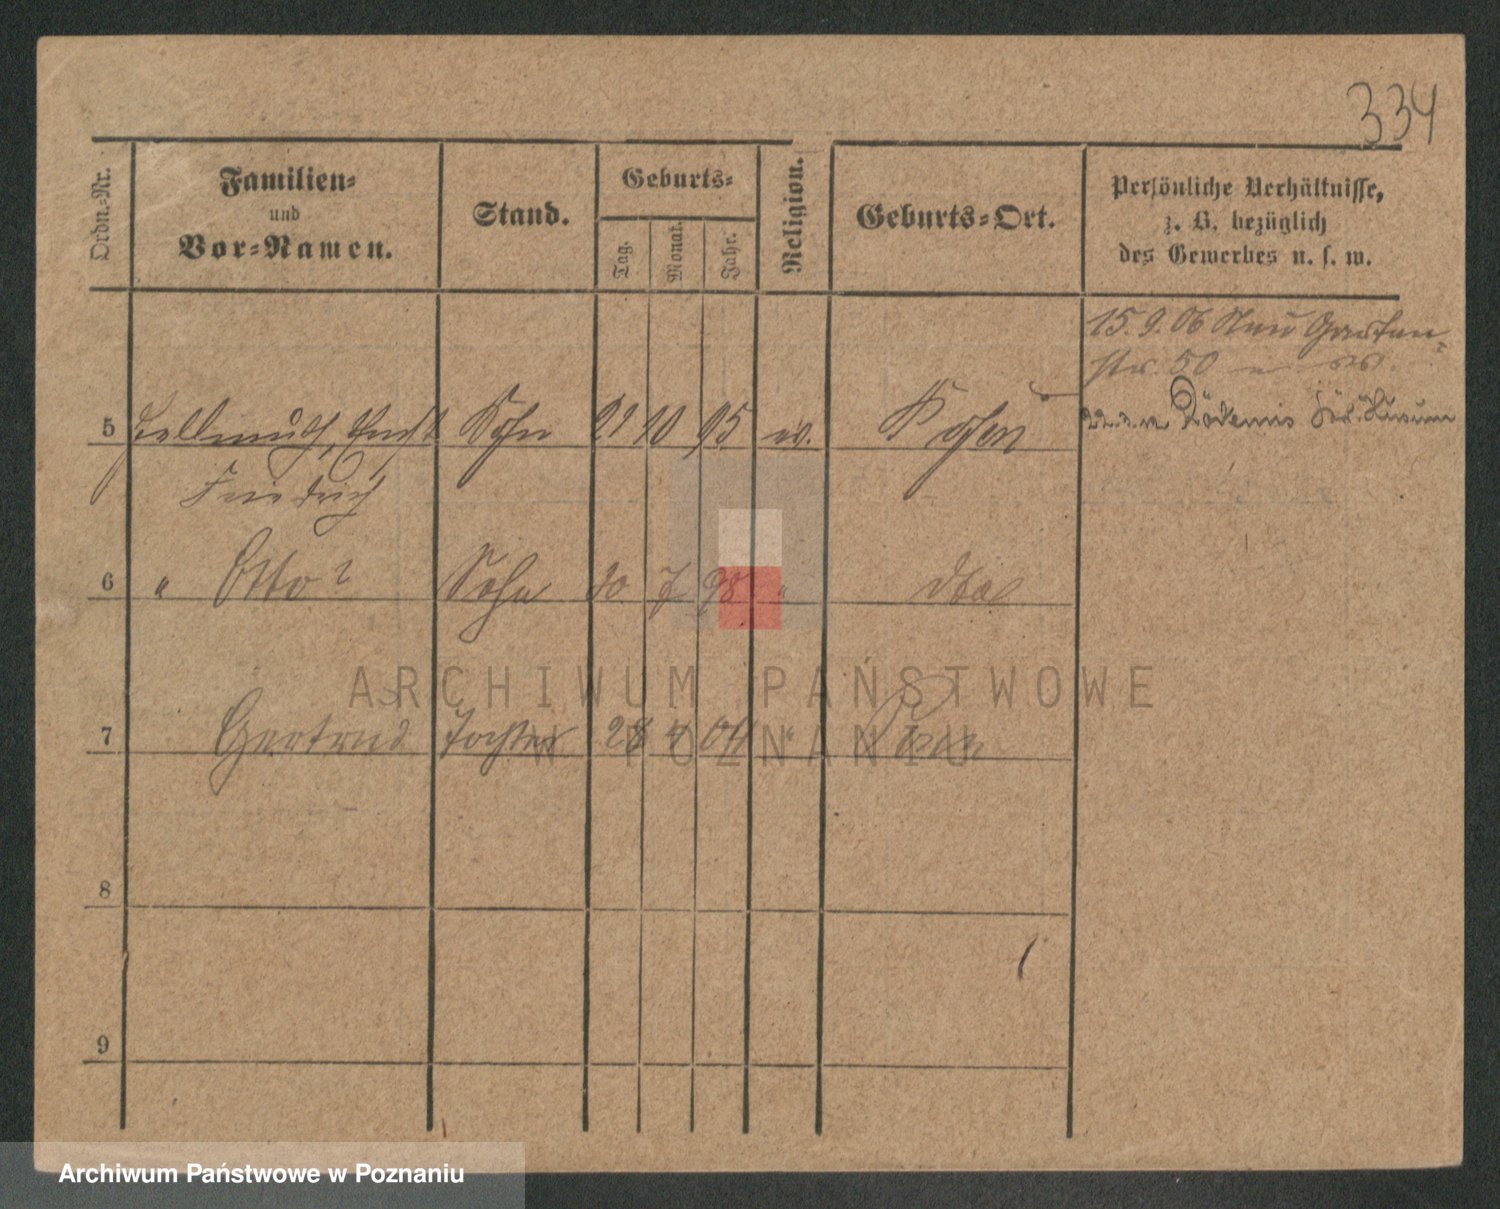 334
Ordn.-Nr.
Familien-
und
Vor-Namen.
Stand.
Geburts-
Tag.
Monat.
Jahr.
Religion.
Geburts-Ort.
Persönliche Verhältnisse,
z. B. bezüglich
des Gewerbes u. s. w.
15.9.06
str. 50
5 Hellmuth, Sohn 10 95 ev. Posen
Friedrich
6 " Otto Sohn 7 98 "
7 Gertrud Tochter 4 04 " Posen
8
9
ARCHIWUM PAŃSTWOWE
W POZNANIU
Archiwum Państwowe w Poznaniu